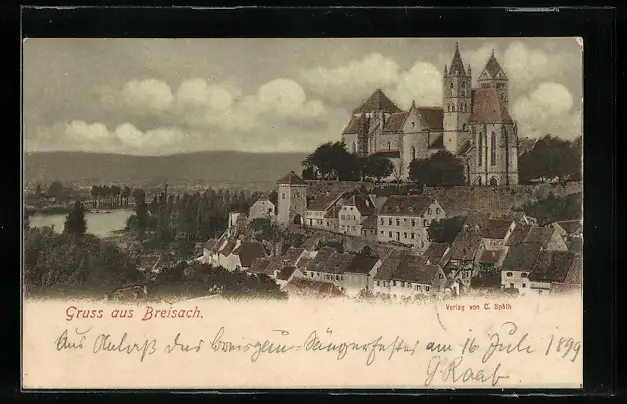 Gruss aus Breisach.
Verlag von C. Späth
Aus Anlaß des Breisgau-Sängerfestes am 16 Juli 1899
G. Raab